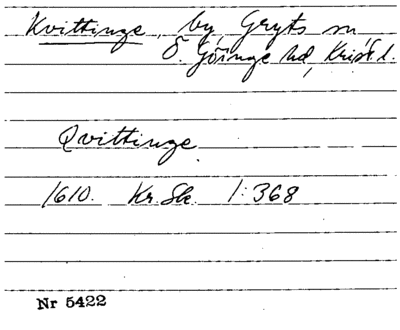 Kvittinge, by, Gryts sn,
Ö. Göinge hd, Krist. l.
Qvittinge
1610. Kr. Sk. 1:368
Nr 5422